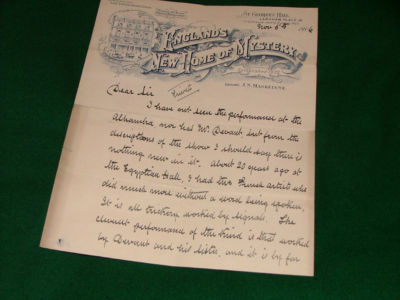 St George's Hall,
Langham Place W
Nov 6th 1906
England's
New Home of Mystery
Lessee J. N. Maskelyne
Dear Sir
Private
I have not seen the performance at the
Alhambra, nor has Mr. Devant, but from the
descriptions of the show I should say there is
nothing new in it. About 20 years ago at
the Egyptian Hall, I had two French artists who
did much more without a word being spoken.
It is all trickery worked by signals. The
cleverest performance of the kind is that worked
by Devant and his sister, and it is by far